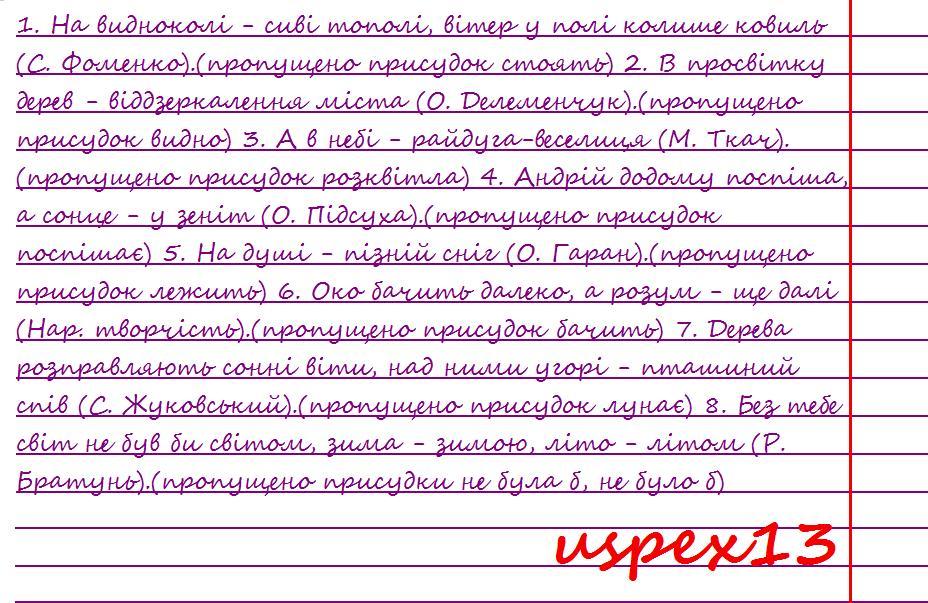 1. На видноколі – сиві тополі, вітер у полі колише ковиль
(С. Фоменко).(пропущено присудок стоять) 2. В просвітку
дерев – віддзеркалення міста (О. Делеменчук).(пропущено
присудок видно) 3. А в небі – райдуга-веселиця (М. Ткач).
(пропущено присудок розквітла) 4. Андрій додому поспіша,
а сонце – у зеніт (О. Підсуха).(пропущено присудок
поспішає) 5. На душі – пізній сніг (О. Гаран).(пропущено
присудок лежить) 6. Око бачить далеко, а розум – ще далі
(Нар. творчість).(пропущено присудок бачить) 7. Дерева
розправляють сонні віти, над ними угорі – пташиний
спів (С. Жуковський).(пропущено присудок лунає) 8. Без тебе
світ не був би світом, зима – зимою, літо – літом (Р.
Братунь).(пропущено присудки не була б, не було б)
uspex13